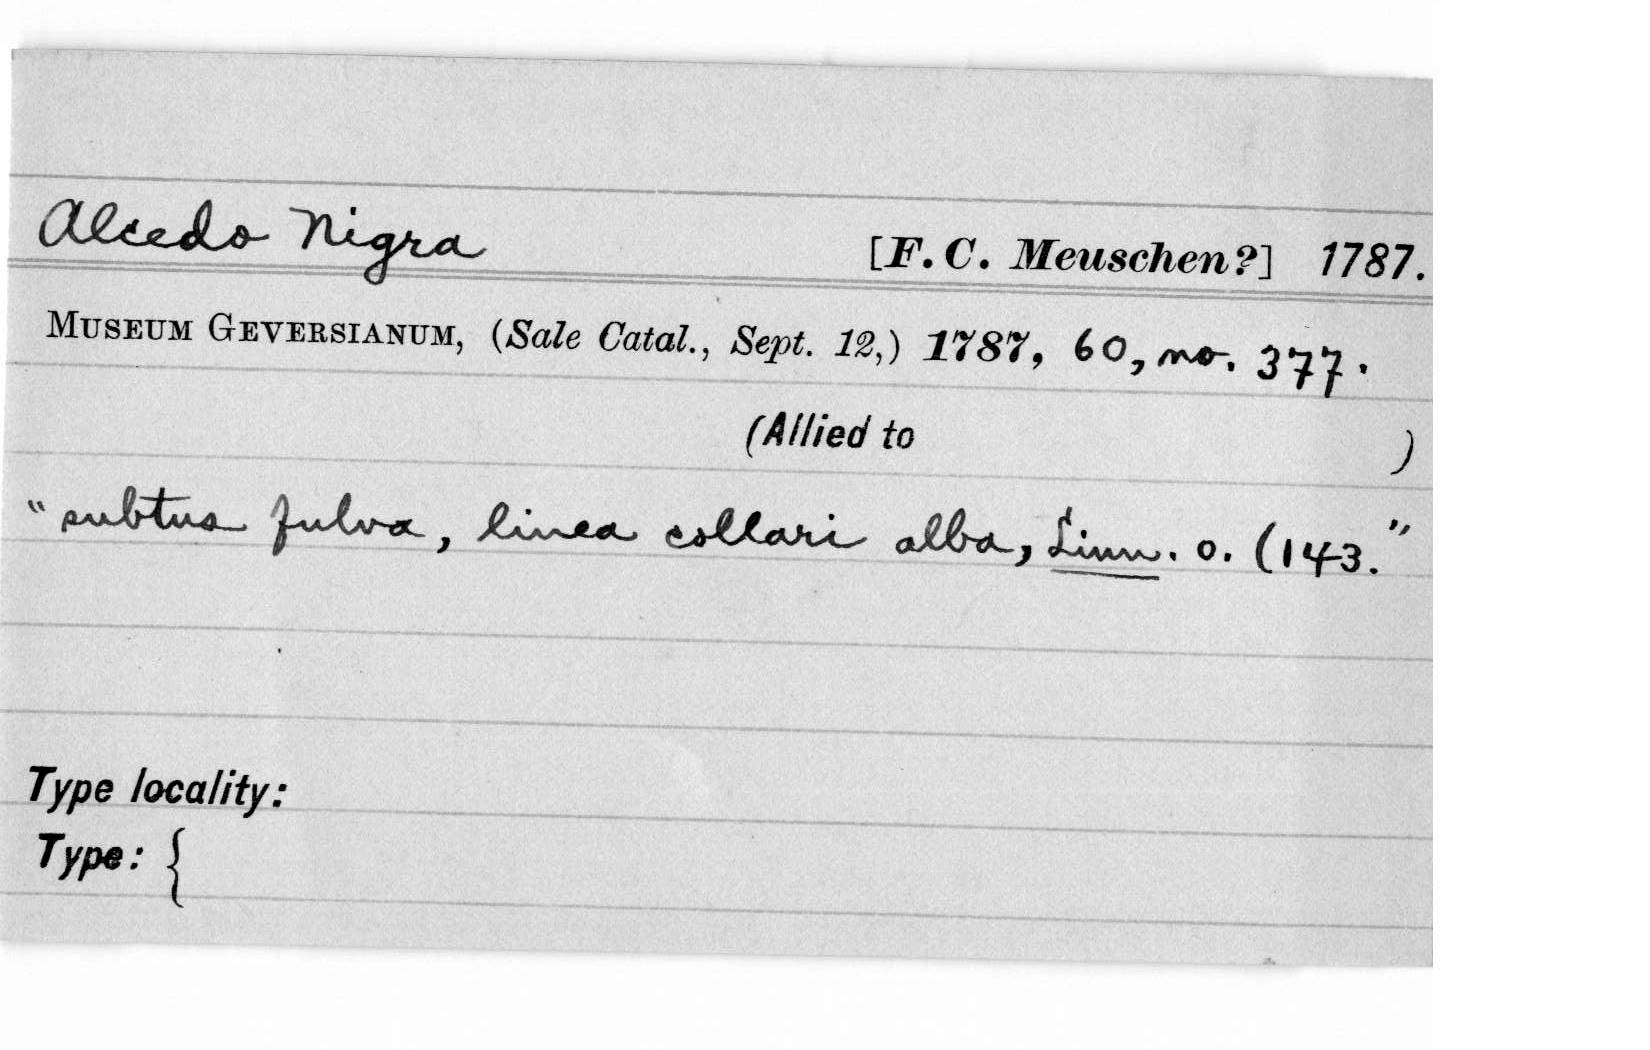 Alcedo Nigra [F. C. Meuschen?] 1787.
MUSEUM GEVERSIANUM, (Sale Catal., Sept. 12,) 1787, 60, no. 377.
(Allied to )
"subtus fulva, linea collari alba, Linn. o. (143."
Type locality:
Type: {